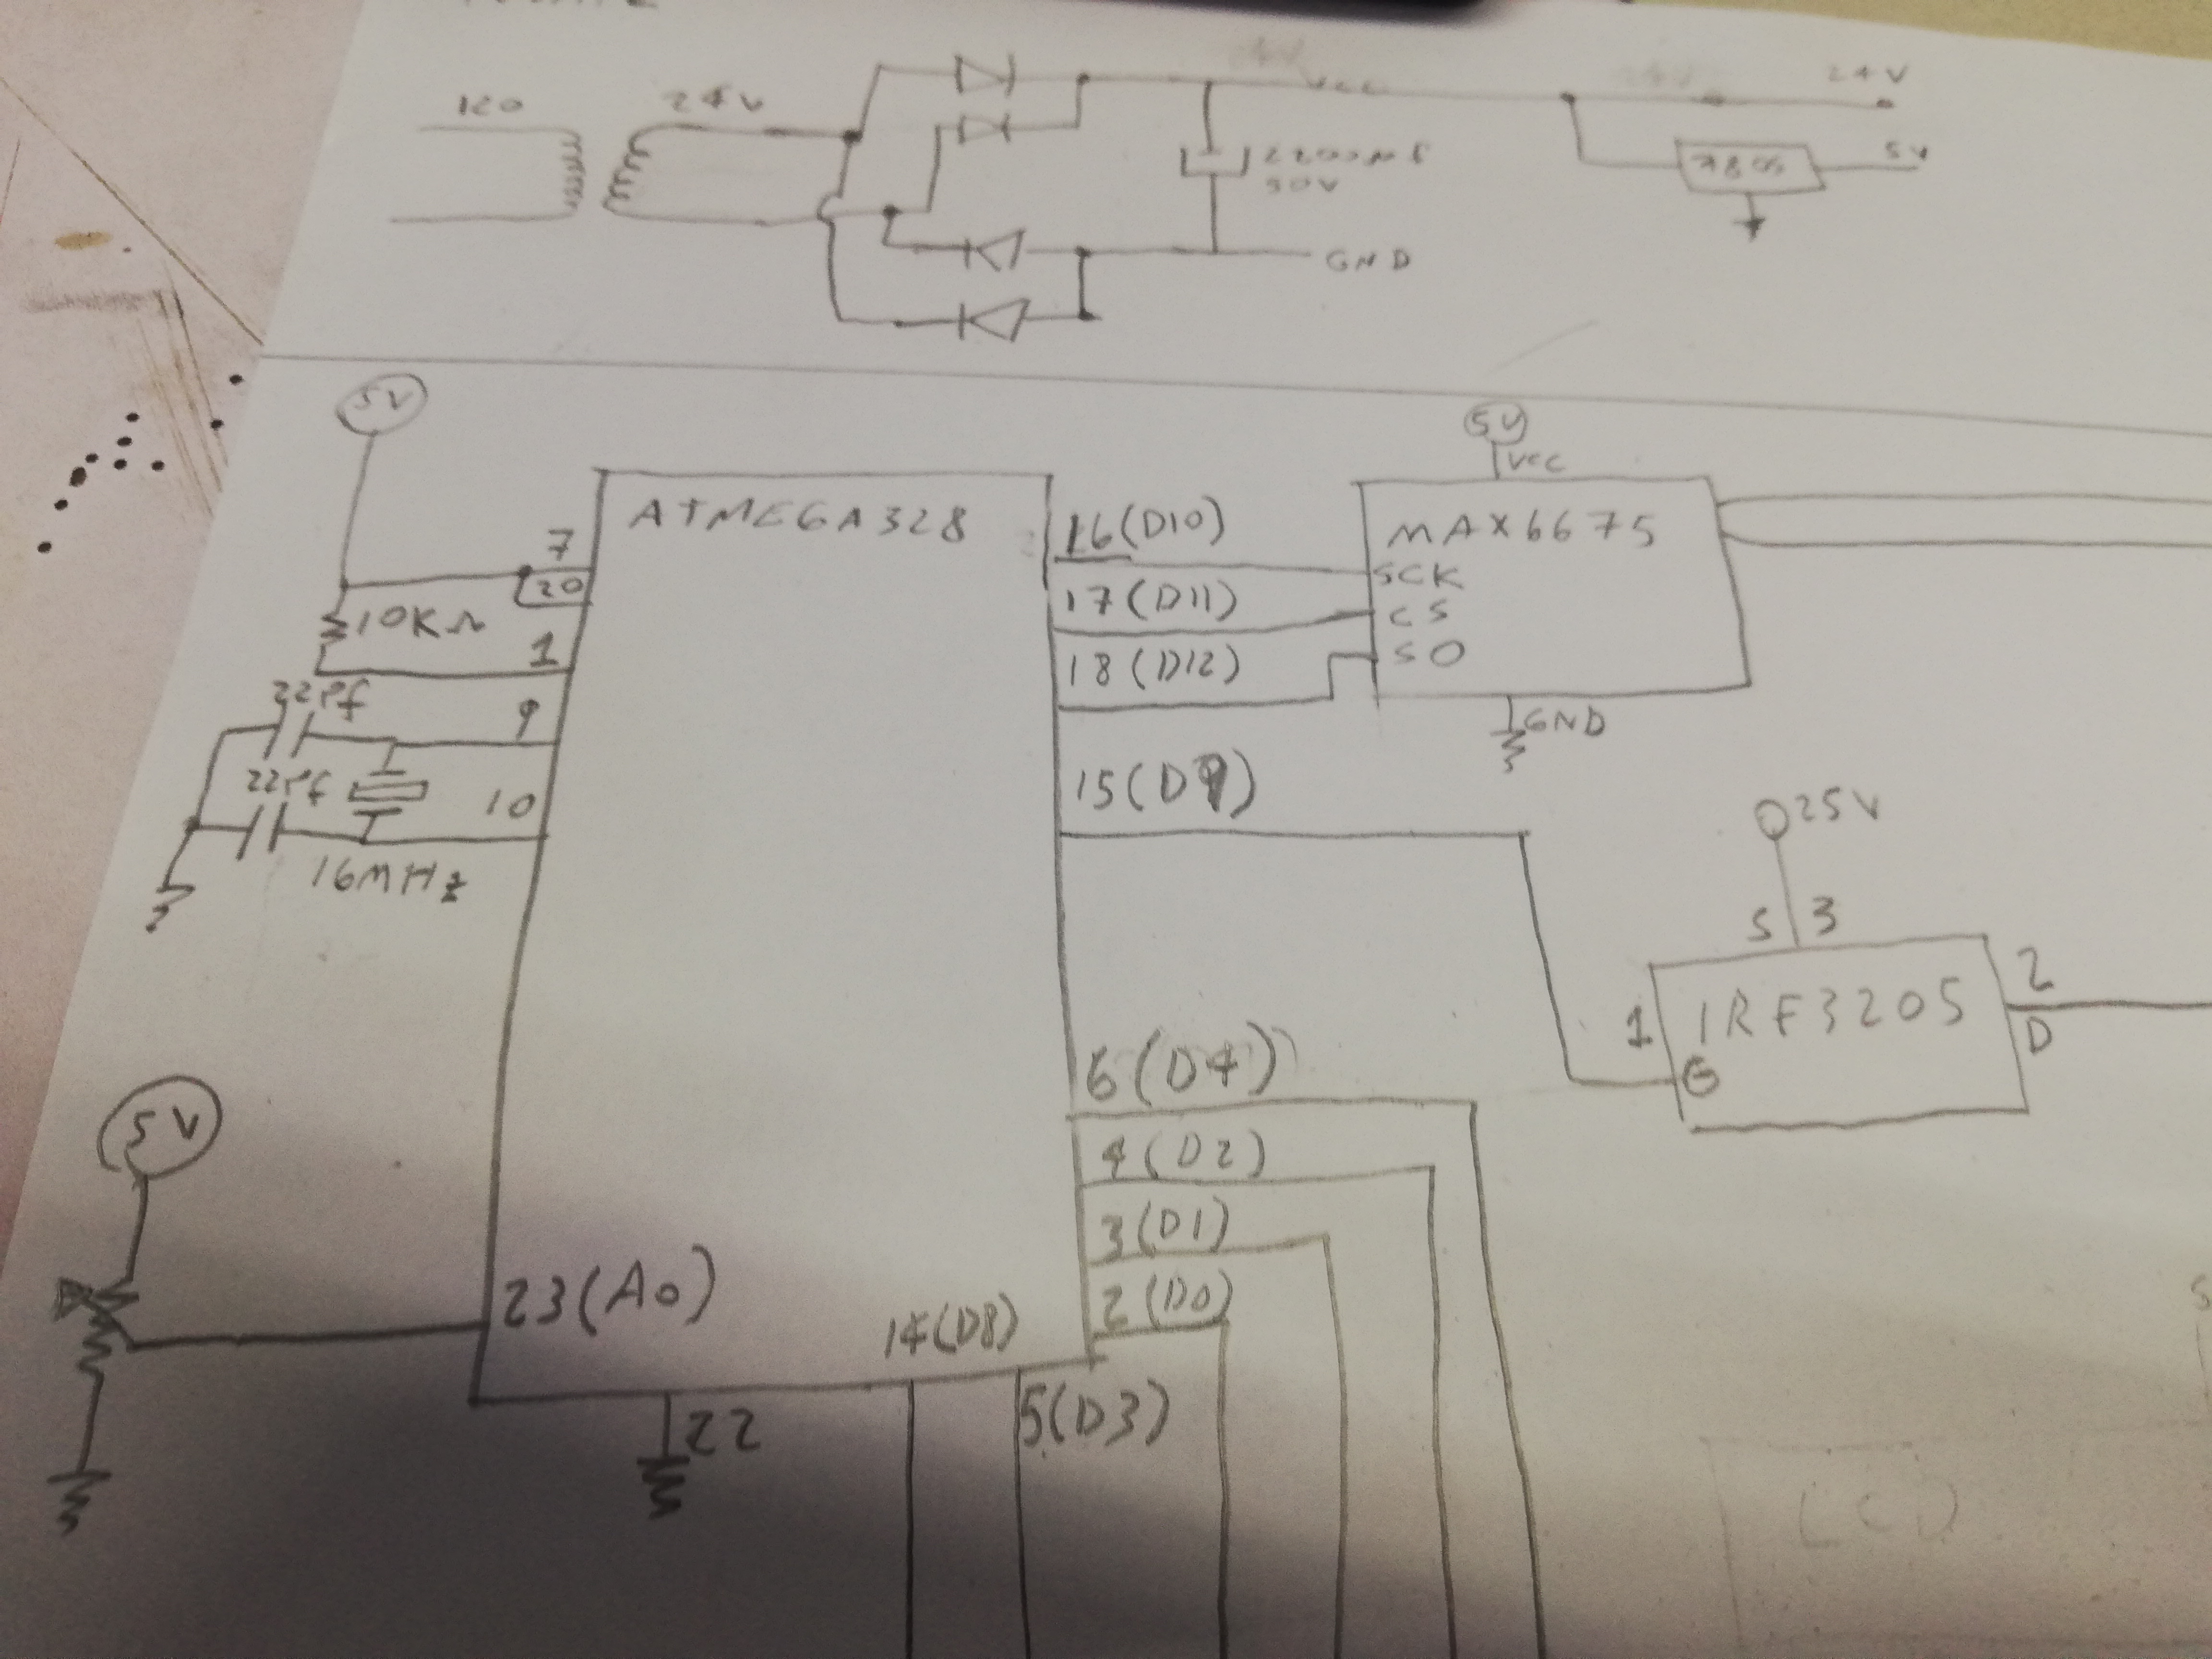 120
24V
Vcc
24V
2200µf
50V
7805
5V
GND
5V
5V
Vcc
ATMEGA328
7
20
10KΩ
1
22pf
9
22pf
10
16MHz
16(D10)
17(D11)
18(D12)
MAX6675
SCK
CS
SO
GND
15(D9)
25V
S 3
IRF3205
1
G
2
D
6(D4)
4(D2)
3(D1)
2(D0)
5V
23(A0)
14(D8)
5(D3)
22
LCD